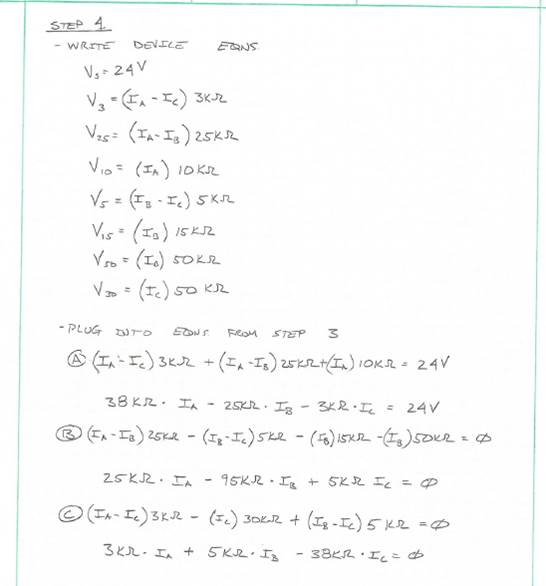 STEP 4
- WRITE DEVICE EQNS
Vs = 24V
V3 = (IA - IC) 3KΩ
V25 = (IA - IB) 25KΩ
V10 = (IA) 10KΩ
V5 = (IB - IC) 5KΩ
V15 = (IB) 15KΩ
V50 = (IB) 50KΩ
V30 = (IC) 50 KΩ
- PLUG INTO EQNS FROM STEP 3
Ⓐ (IA - IC) 3KΩ + (IA - IB) 25KΩ + (IA) 10KΩ = 24V
38KΩ · IA - 25KΩ · IB - 3KΩ · IC = 24V
Ⓑ (IA - IB) 25KΩ - (IB - IC) 5KΩ - (IB) 15KΩ - (IB) 50KΩ = Ø
25KΩ · IA - 95KΩ · IB + 5KΩ IC = Ø
Ⓒ (IA - IC) 3KΩ - (IC) 30KΩ + (IB - IC) 5 KΩ = Ø
3KΩ · IA + 5KΩ · IB - 38KΩ · IC = Ø